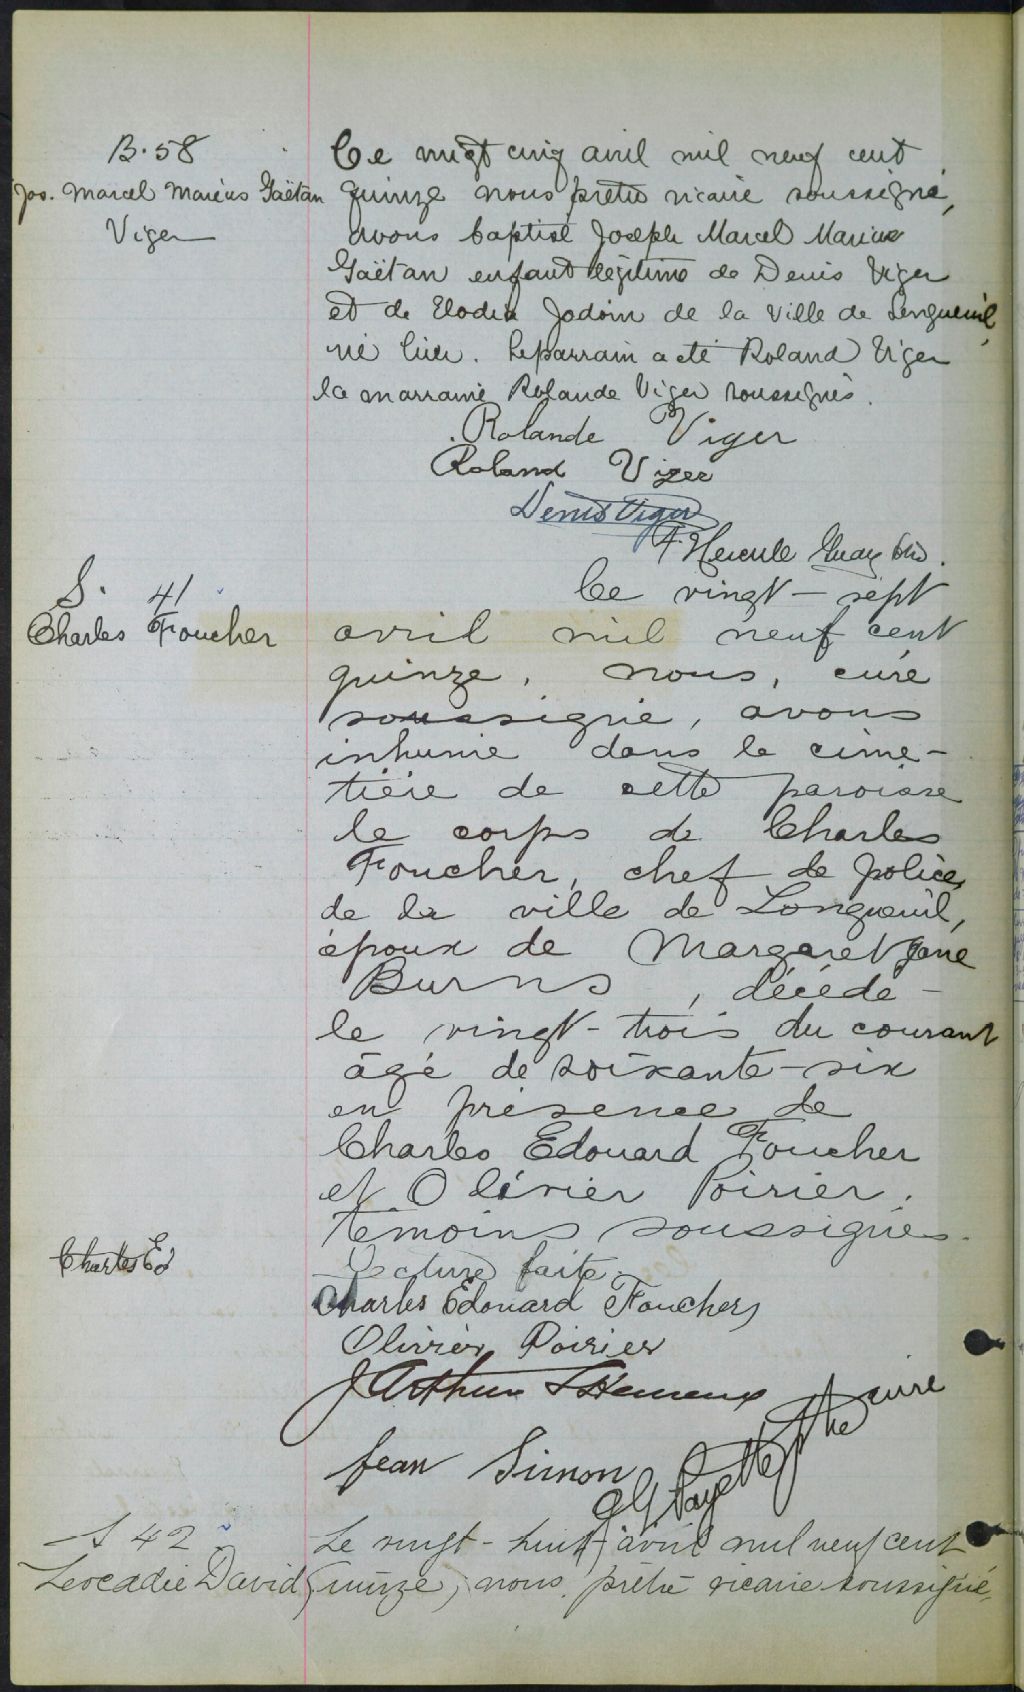 B. 58
Jos. Marcel Marius Gaëtan
Viger
Ce vingt cinq avril mil neuf cent
quinze nous prêtre vicaire soussigné,
avons baptisé Joseph Marcel Marius
Gaëtan enfant légitime de Denis Viger
et de Elodia Jodoin de la ville de Longueuil,
né hier. Le parrain a été Roland Viger
la marraine Rolande Viger soussignés.
Rolande Viger
Roland Viger
Denis Viger
F Hercule Guay
S. 41
Charles Foucher
Ce vingt-sept
avril mil neuf cent
quinze, nous, curé
soussigné, avons
inhumé dans le cime-
tière de cette paroisse
le corps de Charles
Foucher, chef de police,
de la ville de Longueuil,
époux de Margaret Jane
Burns, décédé
le vingt-trois du courant
âgé de soixante-six
en présence de
Charles Edouard Foucher
et Olivier Poirier.
témoins soussignés.
Charles Ed
Lecture faite.
Charles Edouard Foucher
Olivier Poirier
J Arthur
Jean Simon
G Payette ptre curé
S 42
Leocadie David
Le vingt-huit avril mil neuf cent
quinze, nous, prêtre vicaire soussigné,